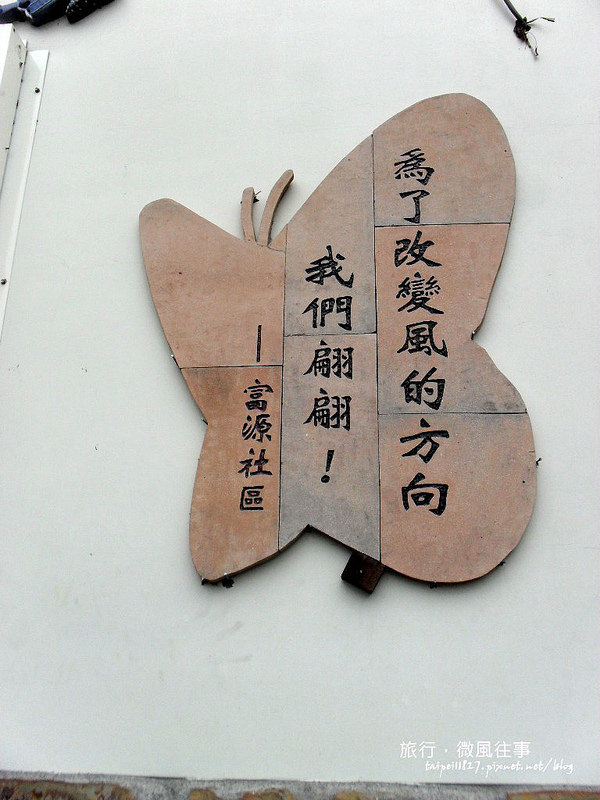 為了改變風的方向
我們翩翩！
—富源社區
旅行．微風往事
taipei11827.pixnet.net/blog